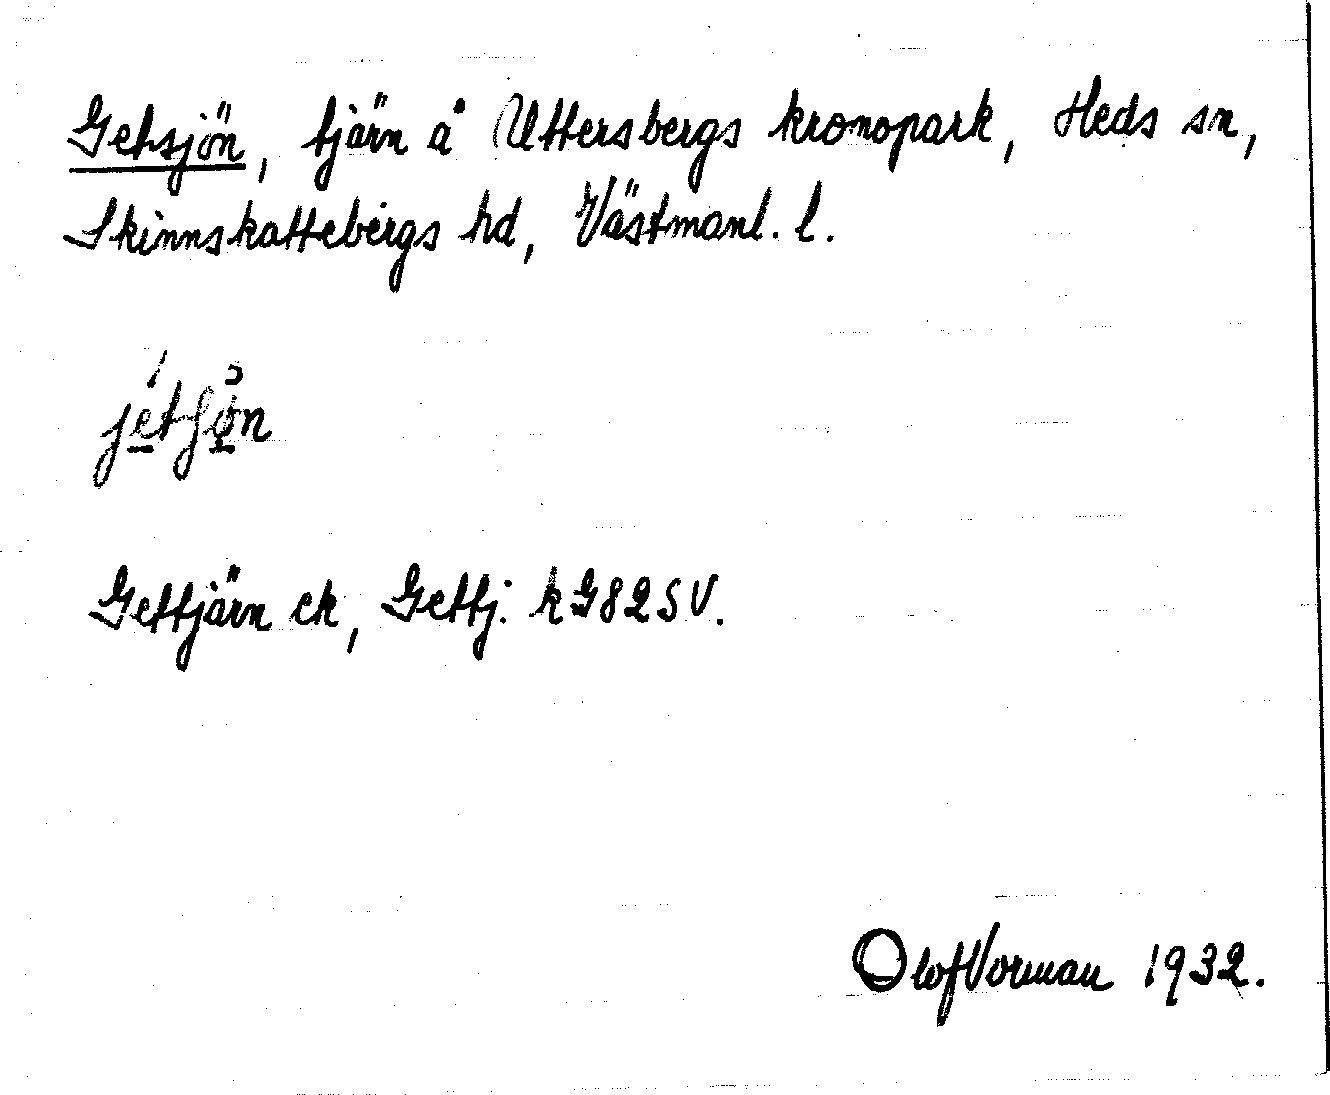 Getsjön, tjärn å Uttersbergs kronopark, Heds sn,
Skinnskattebergs hd, Västmanl. l.
jétʃø̀n
Gettjärn ek, Gettj. k G82SV.
Olof Vorman 1932.